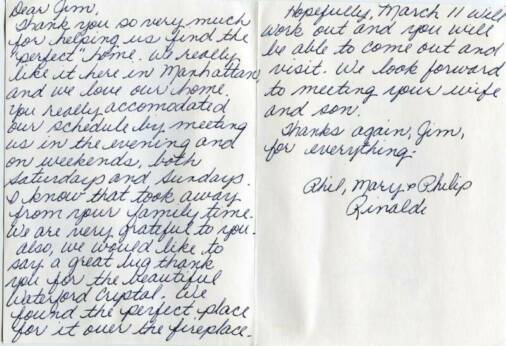 Dear Jim,
Thank you so very much
for helping us find the
"perfect" home. We really
like it here in Manhattan,
and we love our home.
You really accomodated
our schedule by meeting
us in the evening and
on weekends, both
Saturdays and Sundays.
I know that took away
from your family time.
We are very grateful to you.
Also, we would like to
say a great big thank
you for the beautiful
Waterford Crystal. We
found the perfect place
for it over the fireplace.
Hopefully, March 11 will
work out and you will
be able to come out and
visit. We look forward
to meeting your wife
and son.
Thanks again, Jim,
for everything.
Phil, Mary & Philip
Rinaldi